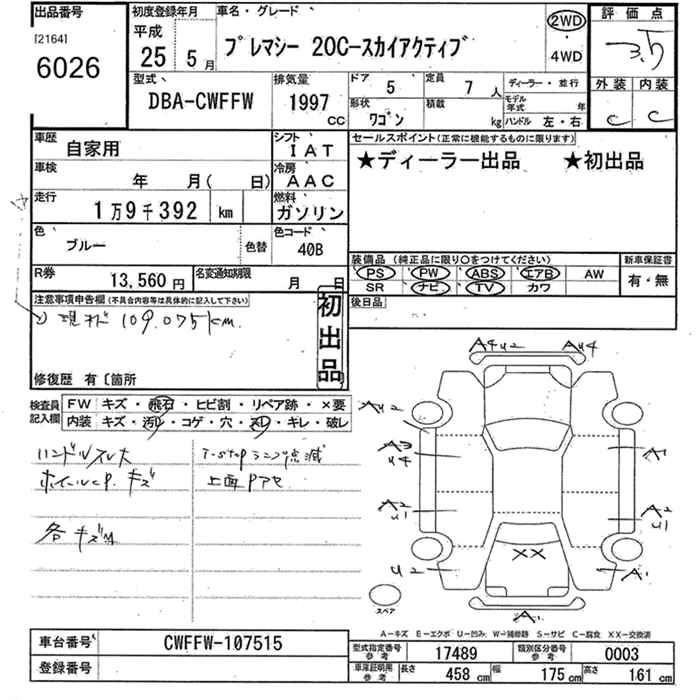 出品番号
[2164]
6026
初度登録年月
平成
25 5月
車名・グレード
プレマシー 20C-スカイアクティブ
2WD
・
4WD
評価点
3.5
外装 内装
C C
型式
DBA-CWFFW
排気量
1997 CC
ドア 5
定員 7 人
形状 ワゴン
積載 kg
ディーラー・並行
モデル年式 年
ハンドル 左・右
車歴 自家用
シフト IAT
車検 年 月( 日)
冷房 AAC
走行 1万9千392 km
燃料 ガソリン
色 ブルー 色替
色コード 40B
R券 13,560円
名変通知期限 月 日
セールスポイント(正常に機能するものに限ります)
★ディーラー出品 ★初出品
装備品(純正品に限り○をつけてください)
PS PW ABS エアB AW
SR ナビ TV カワ
新車保証書
有・無
後日品
注意事項申告欄(不具合内容等は具体的に記入して下さい)
現メーター 109.075km.
初出品
修復歴 有〔箇所 〕
検査員記入欄
FW キズ・飛石・ヒビ割・リペア跡・×要
内装 キズ・汚レ・コゲ・穴・スレ・キレ・破レ
ハンドルスレ大
ホイールCP.キズ
各キズM
i-stopランプ点滅
上面Pアセ
A4U2 AU4
AU2
A3
U4
A2
U1
U2
A1
A2
U1
A1
XX
A1
スペア
A-キズ E-エクボ U-凹み W-補修跡 S-サビ C-腐食 XX-交換済
車台番号 CWFFW-107515
登録番号
型式指定番号 参考 17489
類別区分番号 参考 0003
車庫証明用 参考 長さ 458 cm 幅 175 cm 高さ 161 cm